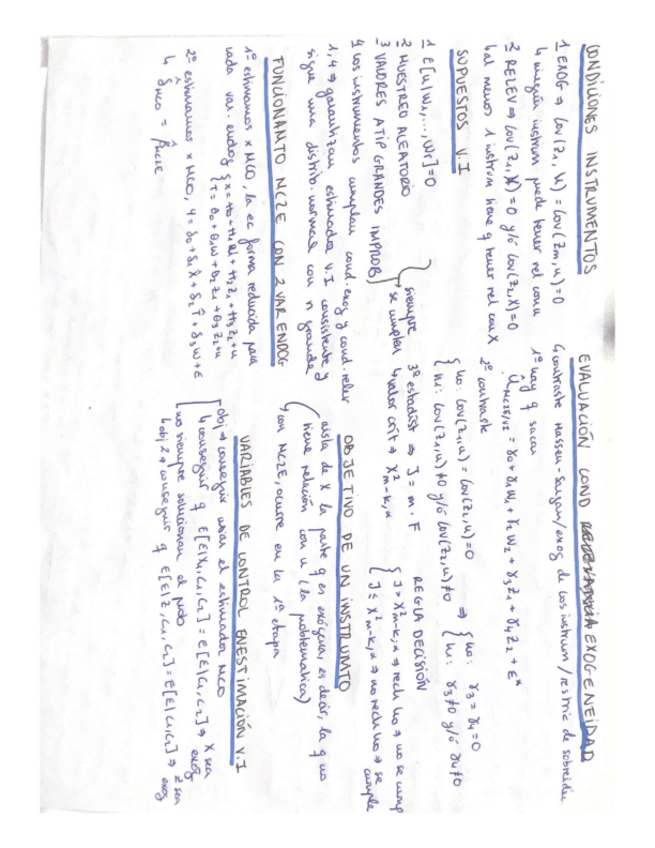 CONDICIONES INSTRUMENTOS
1 EXOG ⇒ Cov(Z1, u) = Cov(Zm, u) = 0
↳ ningún instrum puede tener rel con u
2 RELEV ⇒ Cov(Z1, X) = 0 y/ó Cov(Z2, X) = 0
↳ al menos 1 instrum tiene q tener rel con X
SUPUESTOS V.I
1 E[u|W1, ..., Wr] = 0
2 MUESTREO ALEATORIO
3 VALORES ATIP GRANDES IMPROB
siempre se cumplen
4 Los instrumentos cumplen cond. exog y cond. relev
1, 4 ⇒ garantizan estimador V.I consistente y
sigue una distrib. normal con n grande
FUNCIONAMTO MC2E CON 2 VAR ENDOG
1º estimamos x MCO, la ec forma reducida para
cada var. endog { X = π0 + π1W + π2Z1 + π3Z2 + u
{ T = θ0 + θ1W + θ2Z1 + θ3Z2 + u
2º estimamos x MCO, Y = δ0 + δ1X̂ + δ2T̂ + δ3W + ε
↳ δ̂MCO = β̂MC2E
EVALUACIÓN COND EXOGENEIDAD
↳ contraste Hassen-Sargan/exog de los instrum/restric de sobreiden
1º hay q sacar
ûMC2E/VI = γ0 + γ1W1 + γ2W2 + γ3Z1 + γ4Z2 + ε*
2º contraste
{ H0: Cov(Z1, u) = Cov(Z2, u) = 0 ⇒ { H0: γ3 = γ4 = 0
{ H1: Cov(Z1, u) ≠ 0 y/ó Cov(Z2, u) ≠ 0 { H1: γ3 ≠ 0 y/ó γ4 ≠ 0
3º estadíst ⇒ J = m · F
↳ valor crít ⇒ X²m-k, α
REGLA DECISIÓN
{ J > X²m-k, α ⇒ rech H0 ⇒ no se cump
{ J ≤ X²m-k, α ⇒ no rech H0 ⇒ se cumple
OBJETIVO DE UN INSTRUMTO
aísla de X la parte q es exógena, es decir, la q no
tiene relación con u (la problemática)
↳ con MC2E, ocurre en la 1º etapa
VARIABLES DE CONTROL EN ESTIMACIÓN V.I
obj ⇒ conseguir usar el estimador MCO
↳ conseguir q E[ε|X, C1, C2] = E[ε|C1, C2] ⇒ X sea exóg
no siempre solucionan el
↳ obj 2 ⇒ conseguir q E[ε|Z, C1, C2] = E[ε|C1, C2] ⇒ Z sea exog